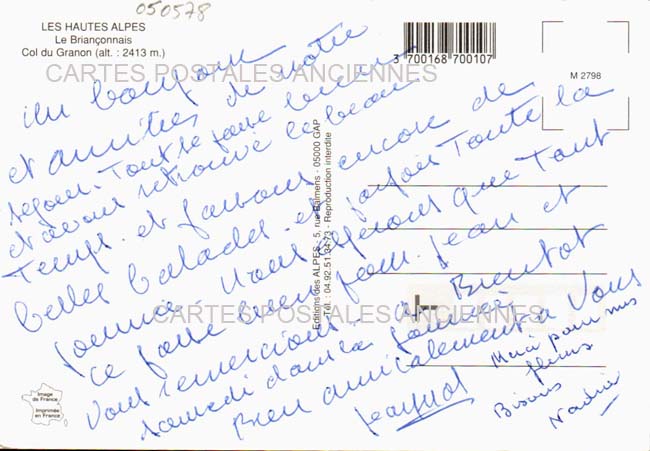 050578
LES HAUTES ALPES
Le Briançonnais
Col du Granon (alt. : 2413 m.)
3 700168 700107
M 2798
CARTES POSTALES ANCIENNES
Un bonjour
et amitiés de notre
séjour. Tout se passe bien
et avons retrouvé le beau
Temps. et faisons encore de
belles balades et parfois Toute la
journée. Nous espérons que Tout
ce passe bien pour Jean et
Vous remercions. A Bientot
samedi dans la journée.
Bien amicalement à Vous
Merci pour mes
fleurs
Bisous
Nadine
Editions des ALPES - 5, rue Balmens - 05000 GAP
Tél. : 04.92.51.34.73 - Reproduction interdite
CARTES POSTALES ANCIENNES
Image
de France
Imprimée
en France